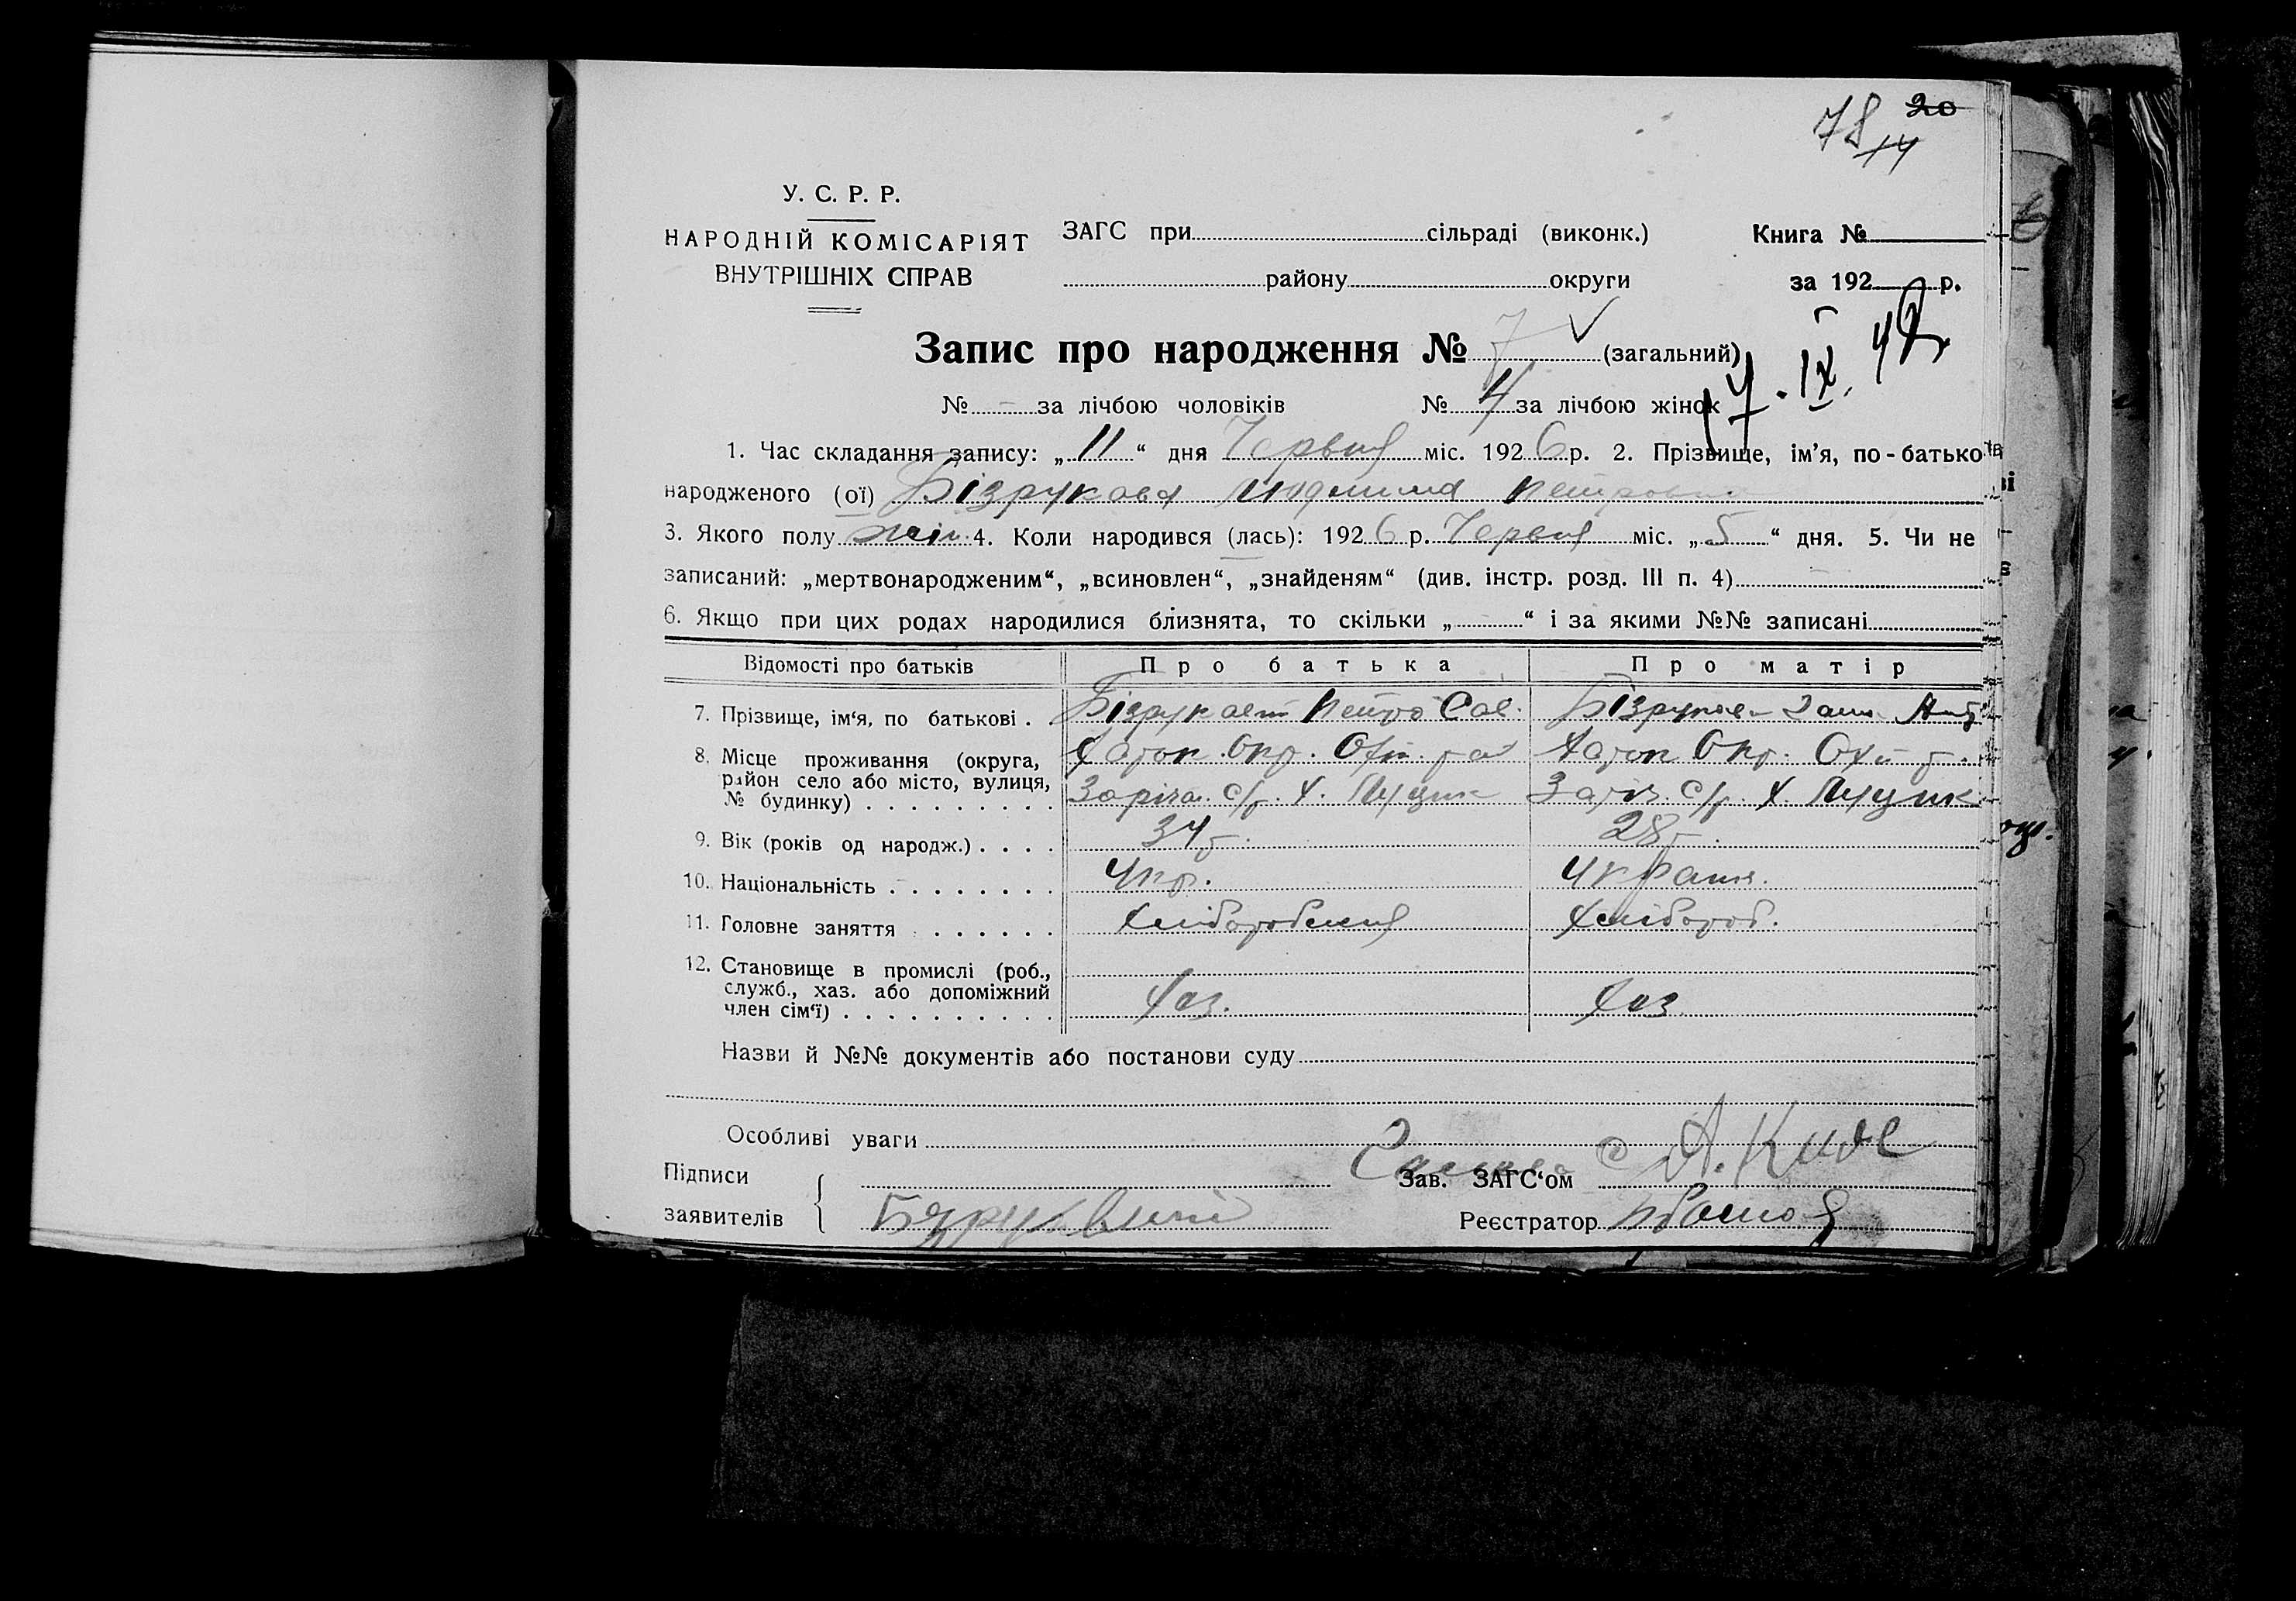 78 20
14
У. С. Р. Р.
НАРОДНІЙ КОМІСАРІЯТ
ВНУТРІШНІХ СПРАВ
ЗАГС при сільраді (виконк.)
району округи
Книга №
за 192 р.
Запис про народження № 7 (загальний)
№ - за лічбою чоловіків № 4 за лічбою жінок
1. Час складання запису: „11“ дня Червня міс. 1926 р. 2. Прізвище, ім’я, по-батькові
народженого (ої) Бізрукова Людмила Петровна
3. Якого полу жін. 4. Коли народився (лась): 1926 р. Червня міс. „5“ дня. 5. Чи не
записаний: „мертвонародженим“, „всиновлен“, „знайденям“ (див. інстр. розд. III п. 4)
6. Якщо при цих родах народилися близнята, то скільки „ “ і за якими №№ записані
Відомості про батьків Про батька Про матір
7. Прізвище, ім‘я, по батькові . . Петро Сав.
8. Місце проживання (округа, Окр. Окр.
район село або місто, вулиця, с/р. Х. с/р. Х.
№ будинку) . . . . . . . . .
9. Вік (років од народж.) . . . . 34 р. 28 р.
10. Національність . . . . . . . . Укр. Україн.
11. Головне заняття . . . . . . Хлібороб.
12. Становище в промислі (роб.,
служб., хаз. або допоміжний Хаз. Хаз
член сім‘ї) . . . . . . . . . .
Назви й №№ документів або постанови суду
Особливі уваги
Підписи Зав. ЗАГС‘ом
заявителів Реєстратор